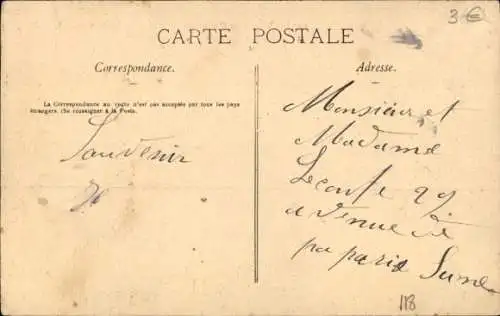 3 €
CARTE POSTALE
Correspondance.
Adresse.
La Correspondance au recto n'est pas acceptée par tous les pays
étrangers. (Se renseigner à la Poste.
Souvenir
Monsieur et
Madame
Leconte 29
avenue
par paris
118